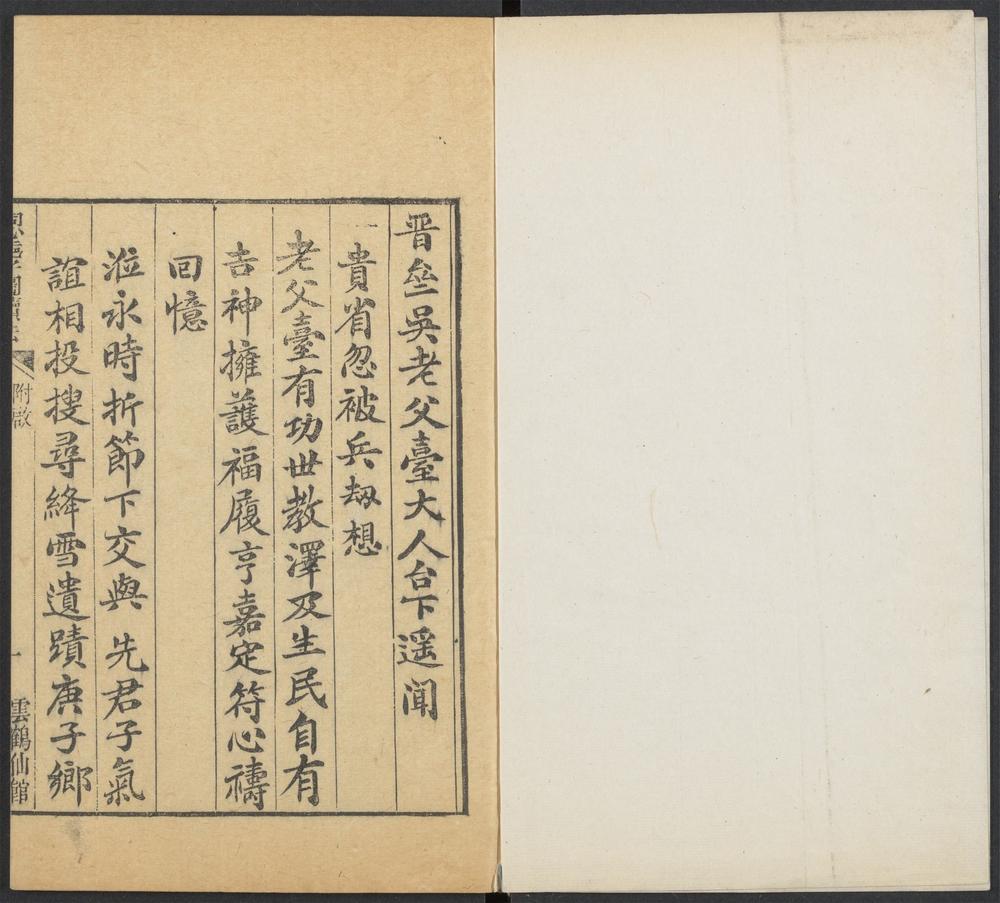 晋壘吳老父臺大人台下遥闻
貴省忽被兵刼想
老父臺有功世教澤及生民自有
吉神擁護福履亨嘉定符心禱
回憶
涖永時折節下交與 先君子氣
誼相投搜尋絳雪遺蹟庚子鄉
附啟
一
雲鶴仙館